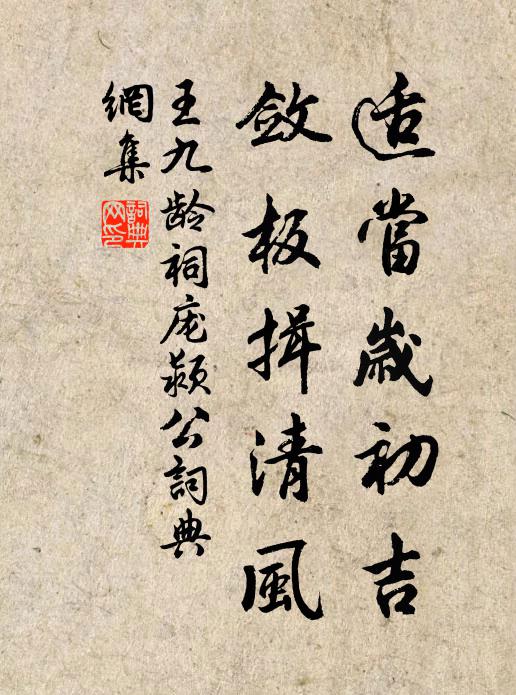 适當歲初吉
斂板揖清風
王九龄祠庞颍公詞典
網集
詞典網印